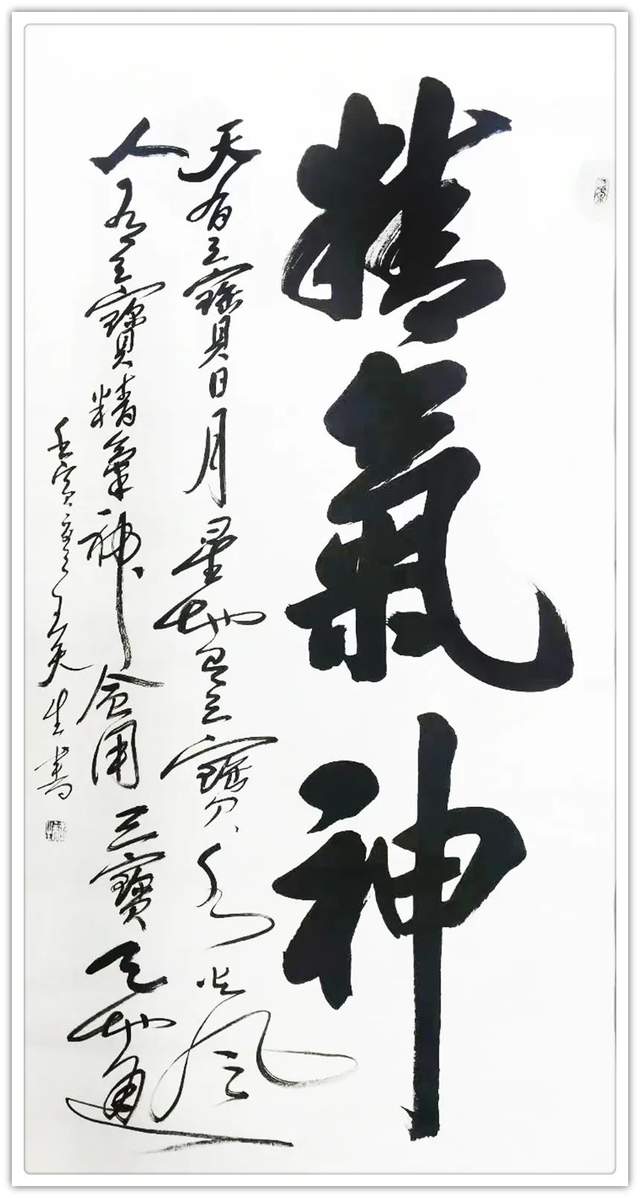 精氣神
天有三寶日月星地有三寶水火風
人有三寶精氣神合用三寶天地通
壬寅 王天生書